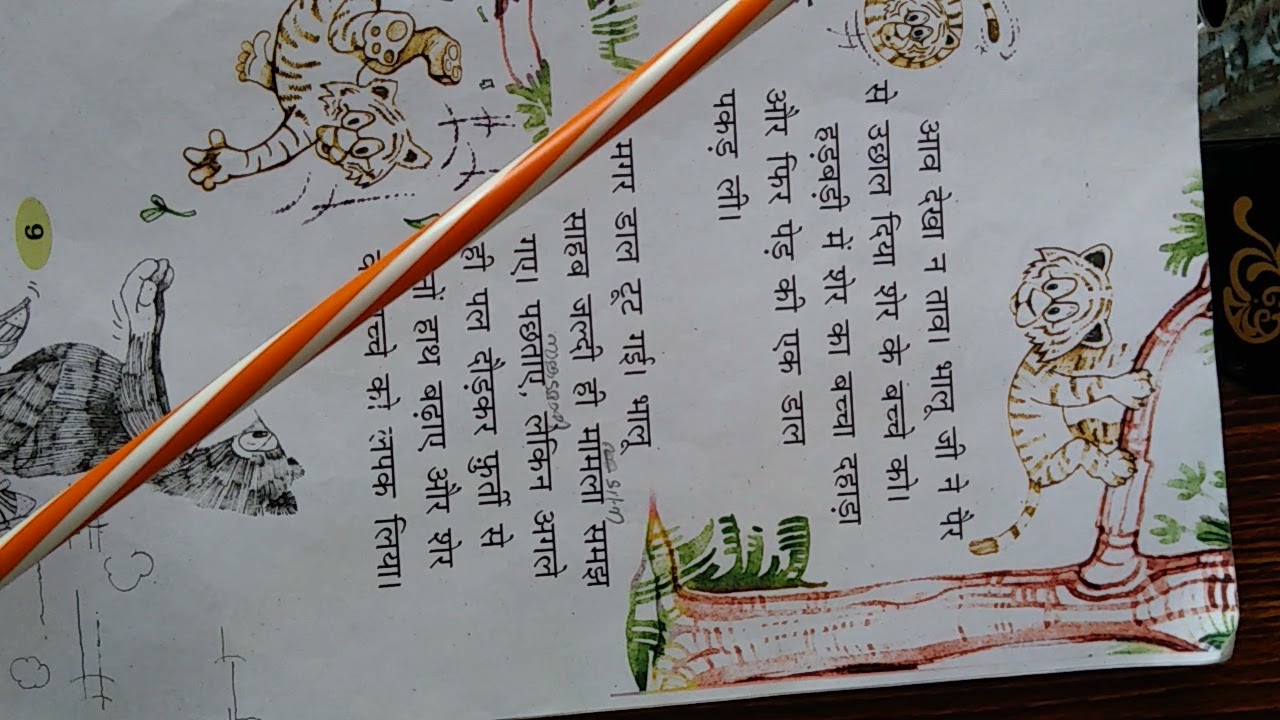 आव देखा न ताव। भालू जी ने पैर
से उछाल दिया शेर के बच्चे को।
हड़बड़ी में शेर का बच्चा दहाड़ा
और फिर पेड़ की एक डाल
पकड़ ली।
मगर डाल टूट गई। भालू
साहब जल्दी ही मामला समझ
गए। पछताए, लेकिन अगले
ही पल दौड़कर फुर्ती से
हाथ बढ़ाए और शेर
को लपक लिया।
9